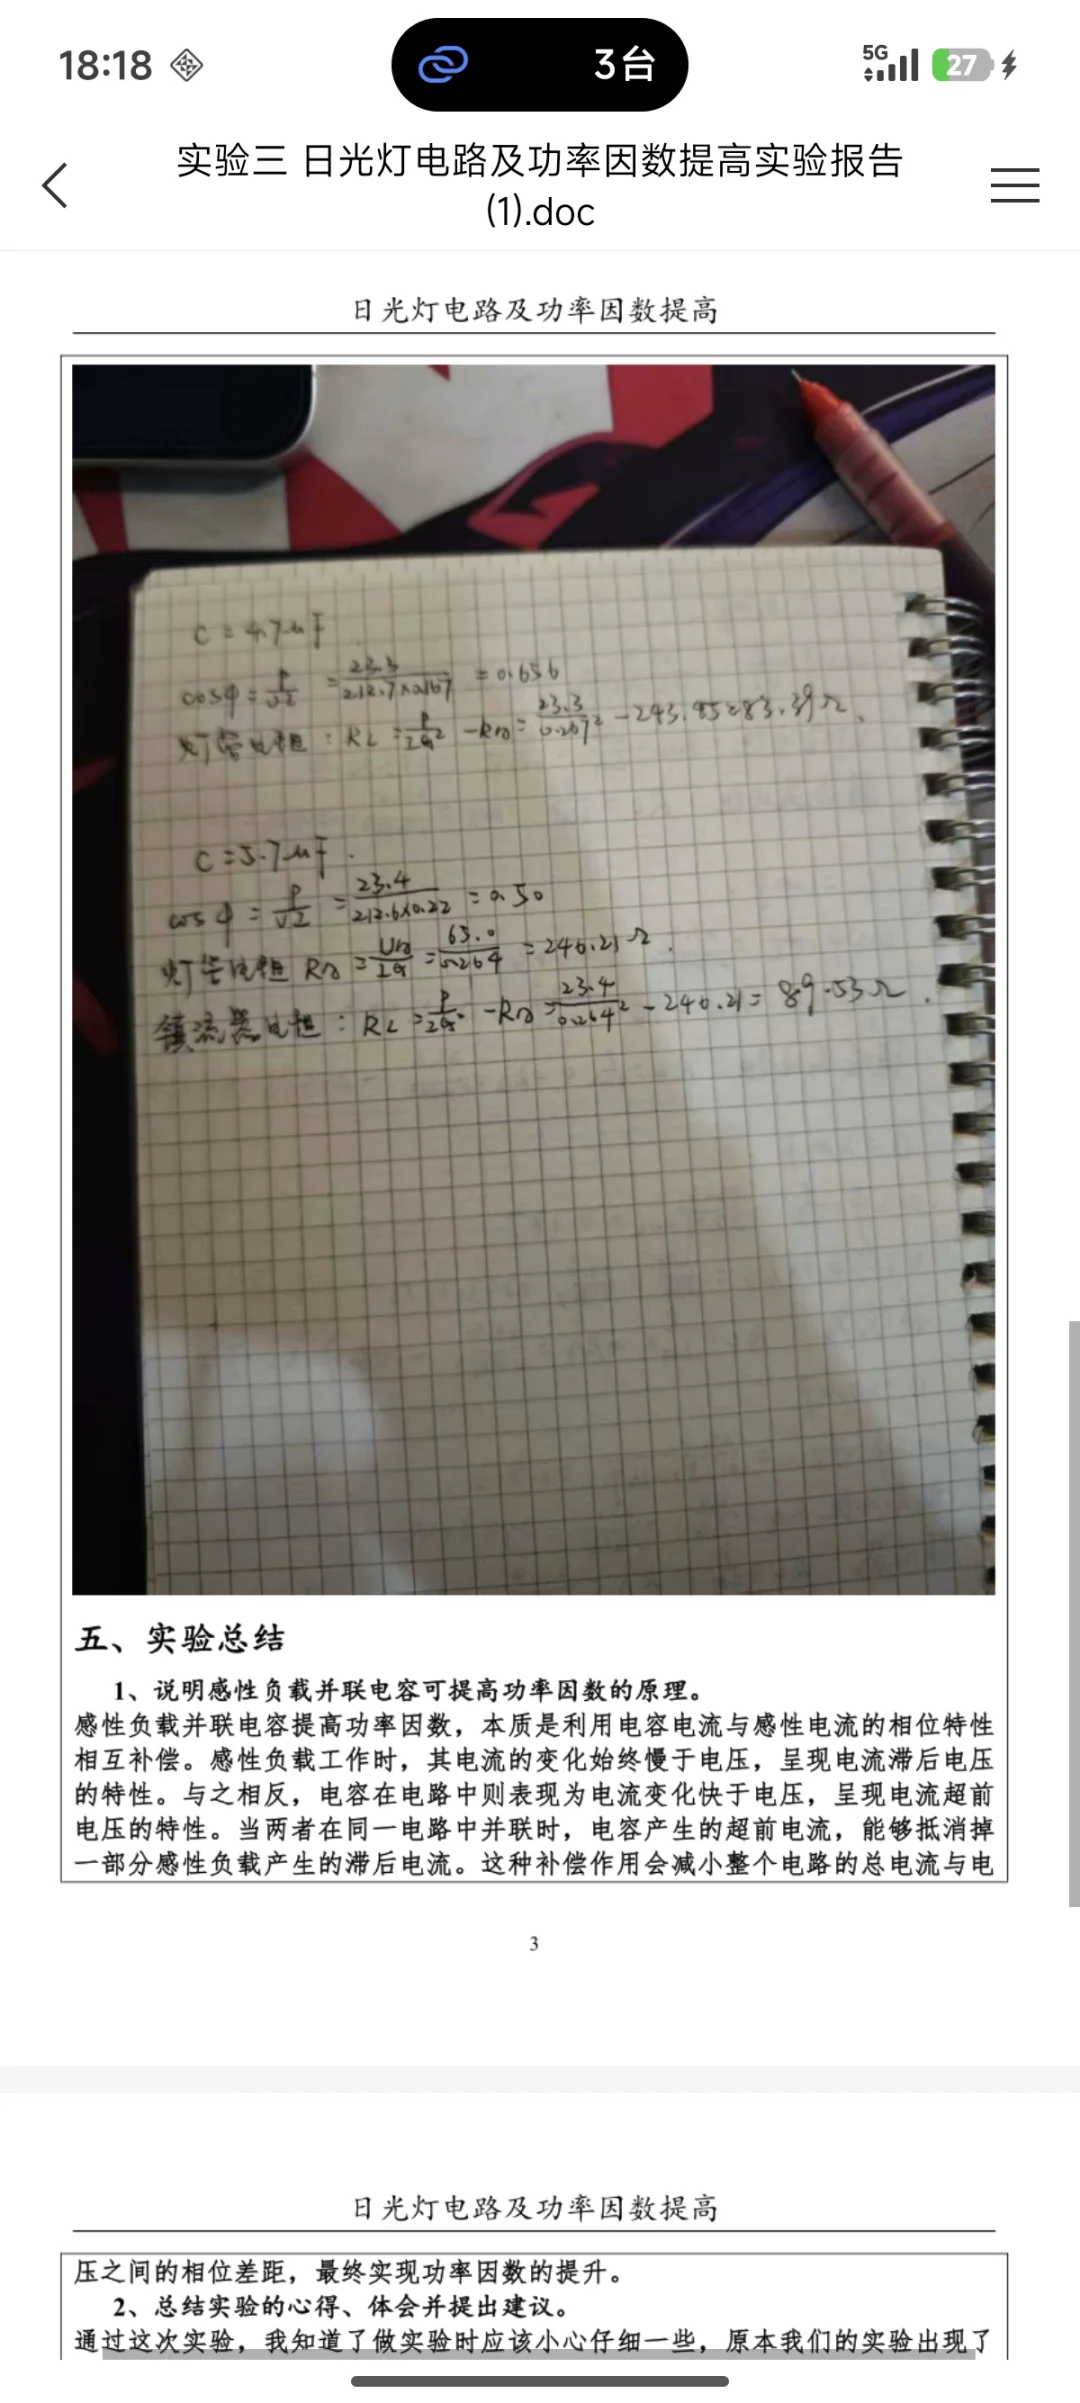 18:18
3台
5G
27
实验三 日光灯电路及功率因数提高实验报告
(1).doc
日光灯电路及功率因数提高
C = 4.7μF
cosφ = P/UI = 23.3/212.7×0.167 = 0.656
灯管电阻: RL = P/IG² - RD = 23.3/0.267² - 243.45 = 83.39Ω
C = 5.7μF.
cosφ = P/UI = 23.4/212.6×0.22 = 0.50
灯管电阻 RD = UD/IG = 65.0/0.264 = 246.21Ω.
镇流器电阻: RL = P/IG² - RD = 23.4/0.264² - 246.21 = 89.53Ω.
五、实验总结
1、说明感性负载并联电容可提高功率因数的原理。
感性负载并联电容提高功率因数，本质是利用电容电流与感性电流的相位特性
相互补偿。感性负载工作时，其电流的变化始终慢于电压，呈现电流滞后电压
的特性。与之相反，电容在电路中则表现为电流变化快于电压，呈现电流超前
电压的特性。当两者在同一电路中并联时，电容产生的超前电流，能够抵消掉
一部分感性负载产生的滞后电流。这种补偿作用会减小整个电路的总电流与电
3
日光灯电路及功率因数提高
压之间的相位差距，最终实现功率因数的提升。
2、总结实验的心得、体会并提出建议。
通过这次实验，我知道了做实验时应该小心仔细一些，原本我们的实验出现了